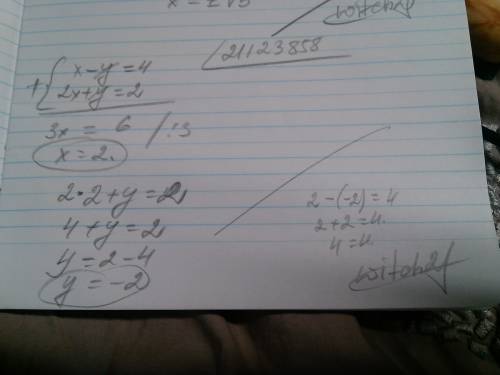 x = 2√3
witch24
21123858
+ { x-y=4
2x+y=2
3x = 6 /:3
x=2.
2·2+y=2
4+y=2
y=2-4
y=-2
2-(-2)=4
2+2=4.
4=4.
witch24